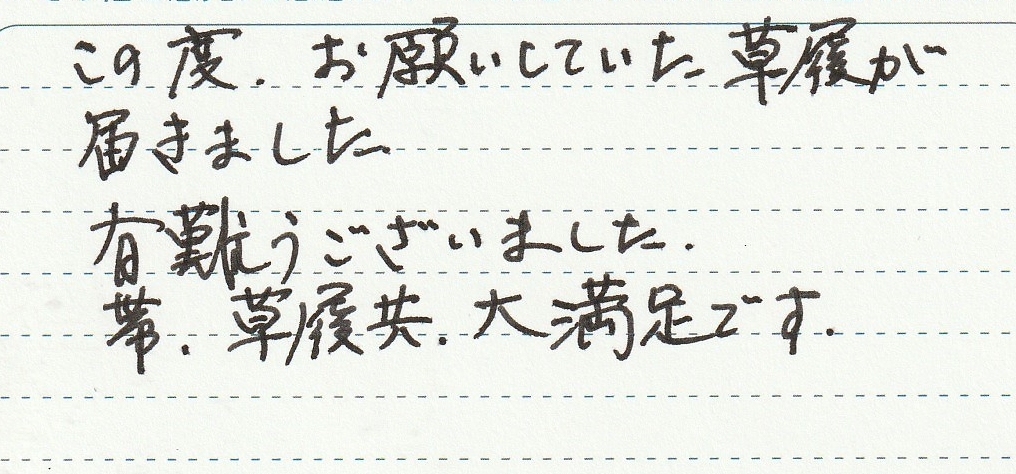 この度、お願いしていた草履が
届きました
有難うございました.
帯、草履共、大満足です.